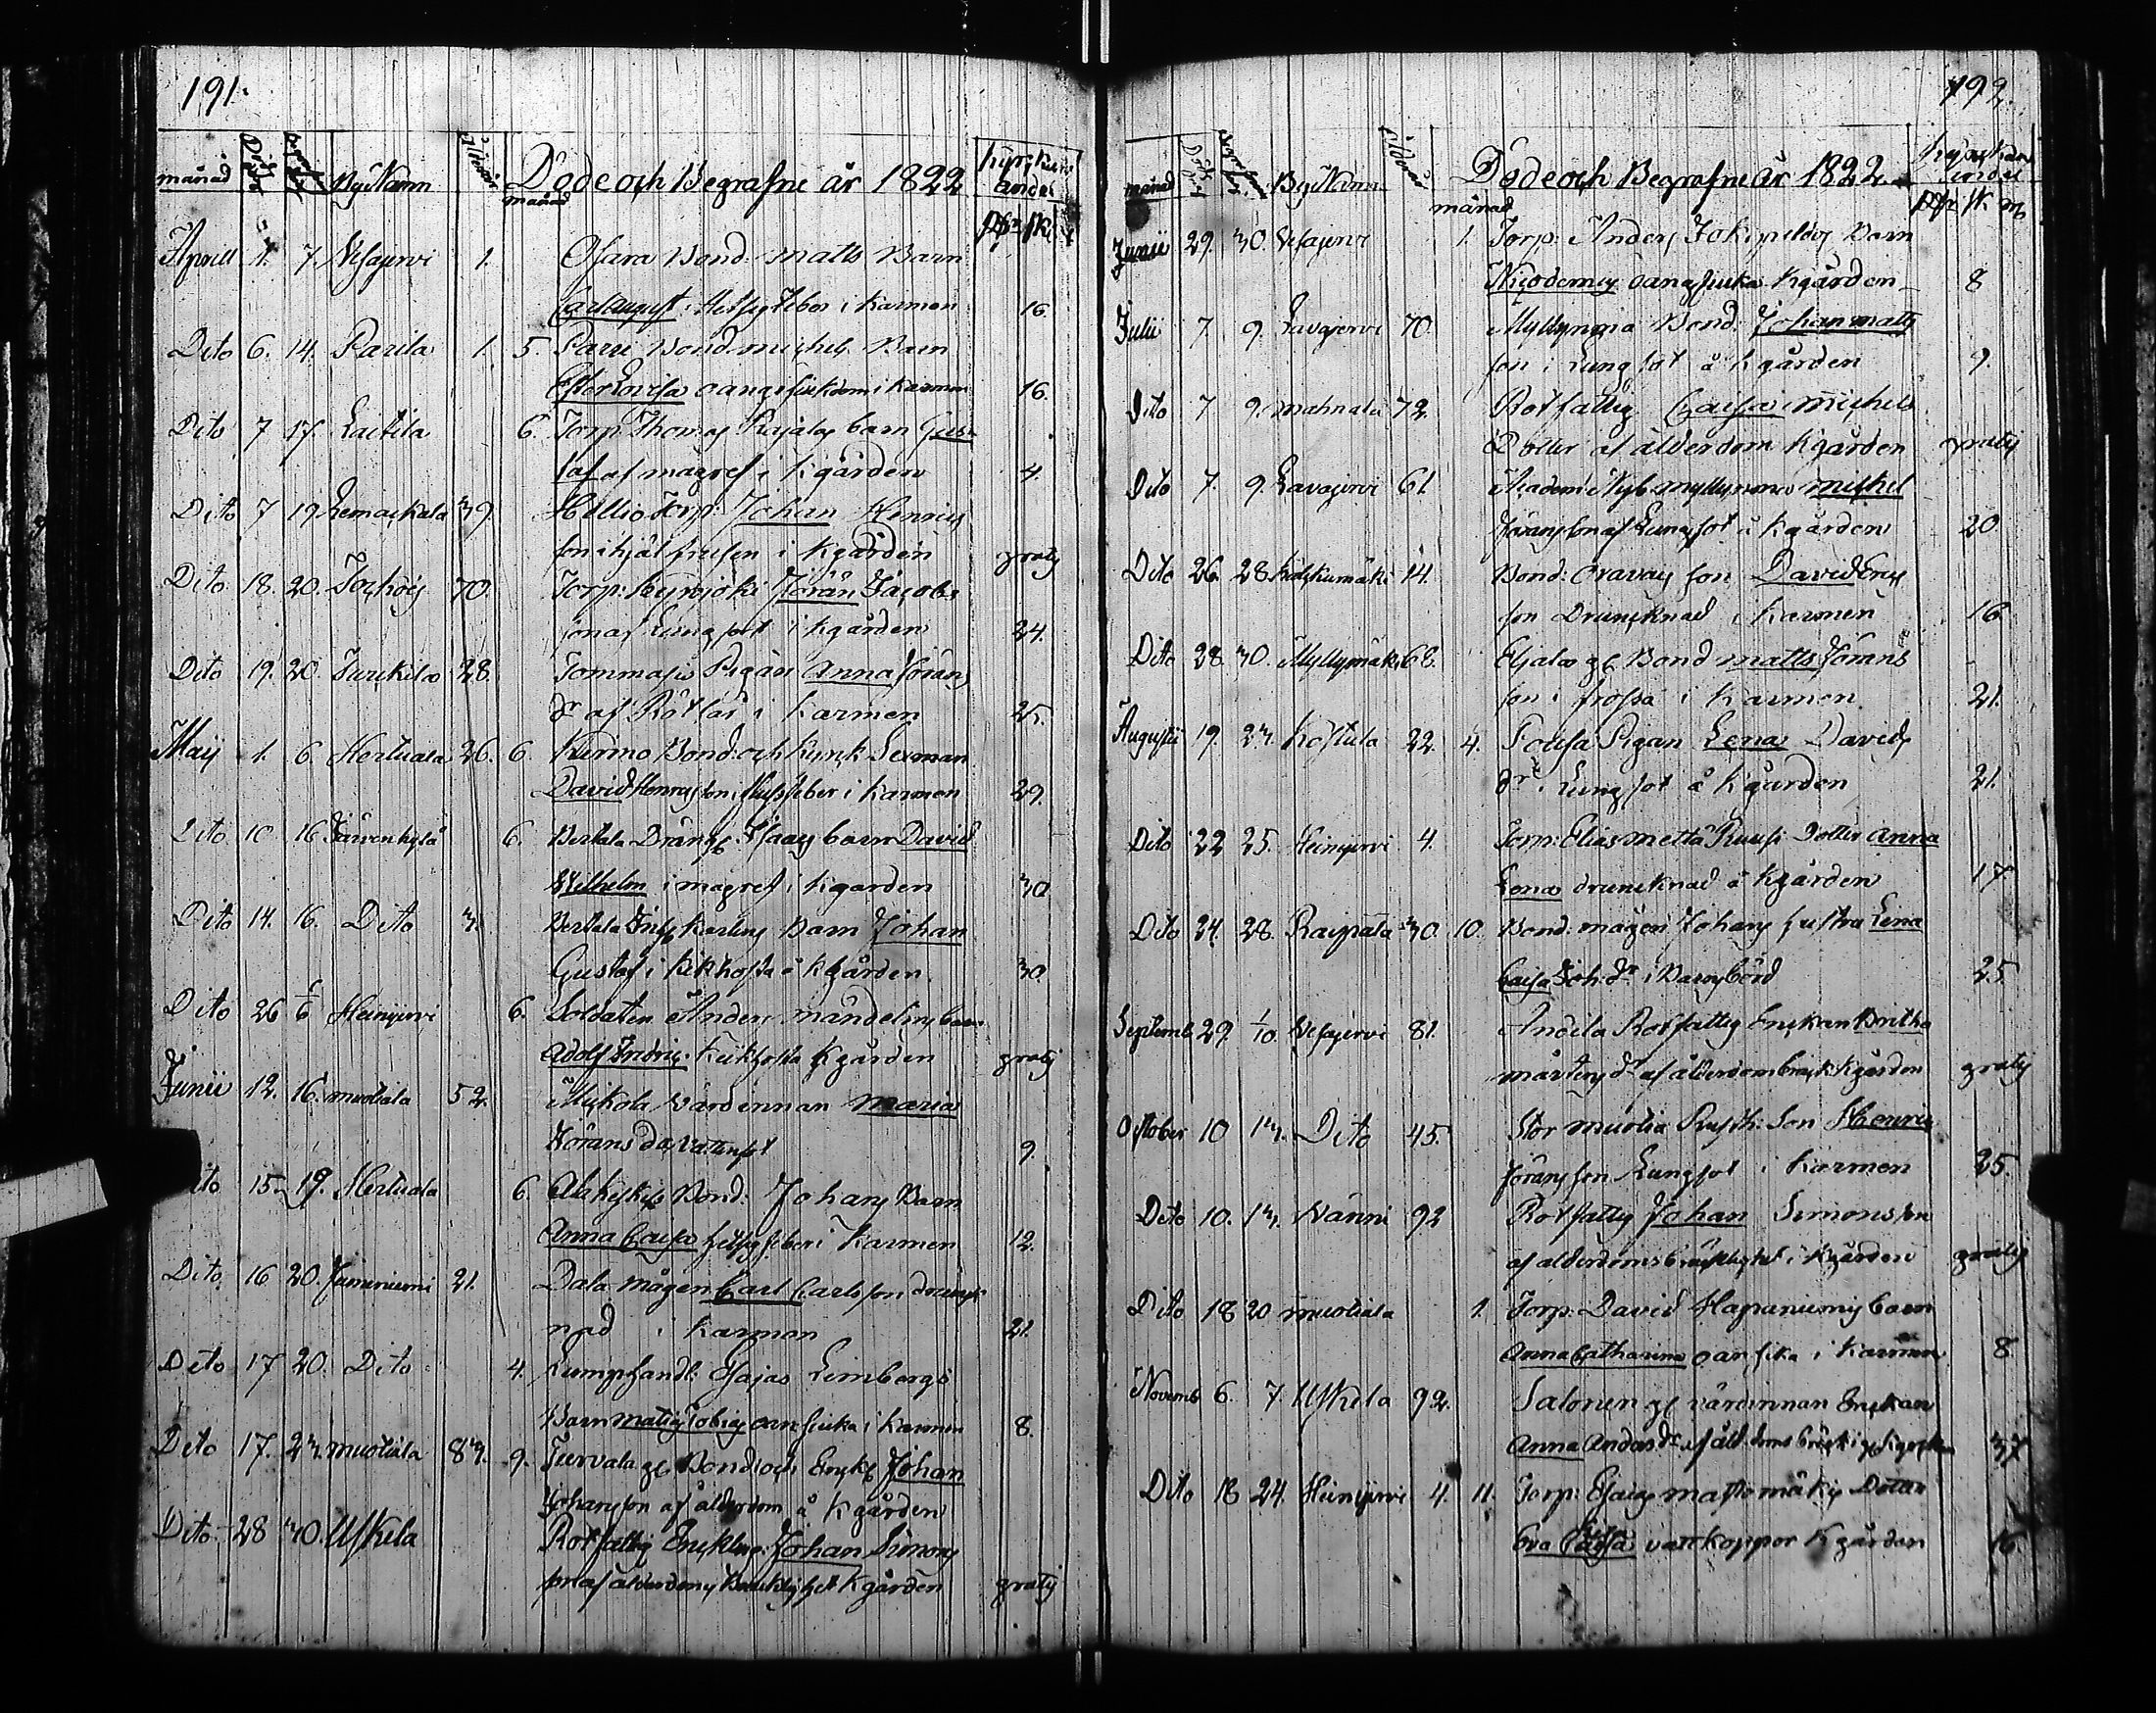 191.
månad Död begrafne Byn Namn ålder Döde och Begrafne år 1822 kyrkans andel
månad
Aprill 1. 7. Vesajervi 1. Ofara Bond: Matts Barn
Carl August i Hetsig feber i Karmen 16.
Dito 6. 14. Parila 1. 5. Parri Bond Michels Barn
Ester Lovisa oangif: sjukdom i Karmen 16.
Dito 7 17. Laitila 6. Torp: Thomas Rajalas barn Gus-
taf af magref i Kgården 4.
Dito 7 19 39. Hellio Torp: Johan Henrics
son ihjäl frusen i Kgården gratis
Dito 18. 20. 70. Torp: Jöran Jacobs
son af Lungsot i Kgården 24.
Dito 19. 20. Turckila 28. Tommasis Pigan Anna Jörans
dr af Rötsår i Karmen 25.
Maij 1. 6. Hertuala 26. 6. Kurmo Bond: och Kyrck Sexman
David Henrics son i Karmen 29.
Dito 10. 16 Järvenkylä 6. Bertala Dräng Isaacs barn David
Wilhelm i magref i Kgården 30
Dito 14. 16. Dito 3. Bertala Karlins Barn Johan
Gustaf i Kikhosta å Kgården. 30.
Dito 26 1/6 Heinijervi 6. Soldaten Anders Mandelins barn
Adolf Fredric: Kikhosta Kgården gratis
Junii 12. 16. Muotiala 52. Mickola Värdinnan Maria
Jörans dr Vattusot 9.
Dito 15. 19. Hertuala 6. Bond: Johans Barn
Anna Caisa hetsig feber i Karmen 12.
Dito 16 20. Jaminiemi 21. Dala Mågen Carl Carlsson drunck-
nad i Karmen 21.
Dito 17 20. Dito 4. Lumphandl: Esajas Limbergs
Barn Matts Tobias oan: siuka i Karmen 8.
Dito 17. 23. Muotiala 83. 9. Turvala gl Bond: och Enckl Johan
Johansson af ålderdom å Kgården
Dito 28 30. Uskela Rotfattig Enckling: Johan Simons
son af ålderdoms Bräcklighet Kgården gratis
192.
månad Död begrafne Byn Namn ålder Döde och Begrafne år 1822. kyrkans andel
månad
Junii 29. 30. Vesajervi 1. Torp: Anders Jokipeldos Barn
Nicodemus oang siuka Kgården 8
Julii 7. 9. Lavajervi 70. Myllymaa Bond: Johan Matts
son i Lungsot å Kgården 9.
Dito 7 9. Mahnala 72. Rotfattig Caisa Michels
Dotter af ålderdom Kgården gratis
Dito 7. 9. Lavajervi 61. Myllymaa Michel
Jöransson af Lungsot å Kgården 20
Dito 26. 28. Kalckumäki 14. Bond: Oravas son David Erics
son Druncknad i Karmen 16.
Dito 28 30. Myllymäki 68. gl Bond Matts Jörans
son i frossa i Karmen 21.
Augusti 19. 23. Kostula 22. 4. Pousa Pigan Lena Davids
dr i Lungsot å Kgården 21.
Dito 22 25. Heinijervi 4. Torp: Elias Dotter Anna
Lena druncknad å Kgården 17
Dito 24. 28. Raipala 30. 10. Bond: mågen Johans hustru Lena
Caisa Joh: dr i Barnsbörd 25
Septemb 29. 1/10 Vesajervi 81. Andila Rotfattig Enckan Britha
Mårtens dr af ålderdoms bräck: Kgården gratis
October 10 13. Dito 45. Stor Muotia Rusth: Son Henric
Jöransson Lungsot i Karmen 25.
Dito 10. 13. Vänni 92 Rotfattig Johan Simonsson
af ålderdoms bräcklighet i Kgården gratis
Dito 18 20 Muotiala 1. Torp: David Hapaniemis barn
Anna Catharina oan sika i Karmen 8.
Novemb 6. 7. Uskela 92. Salonen gl värdinnan Enckan
Anna Anders dr af åld:doms bräck: 37
Dito 18 24. Heinijervi 4. 11. Torp: Esaias Mattomäkis Dotter
Eva Caisa vattkoppor Kgården 16